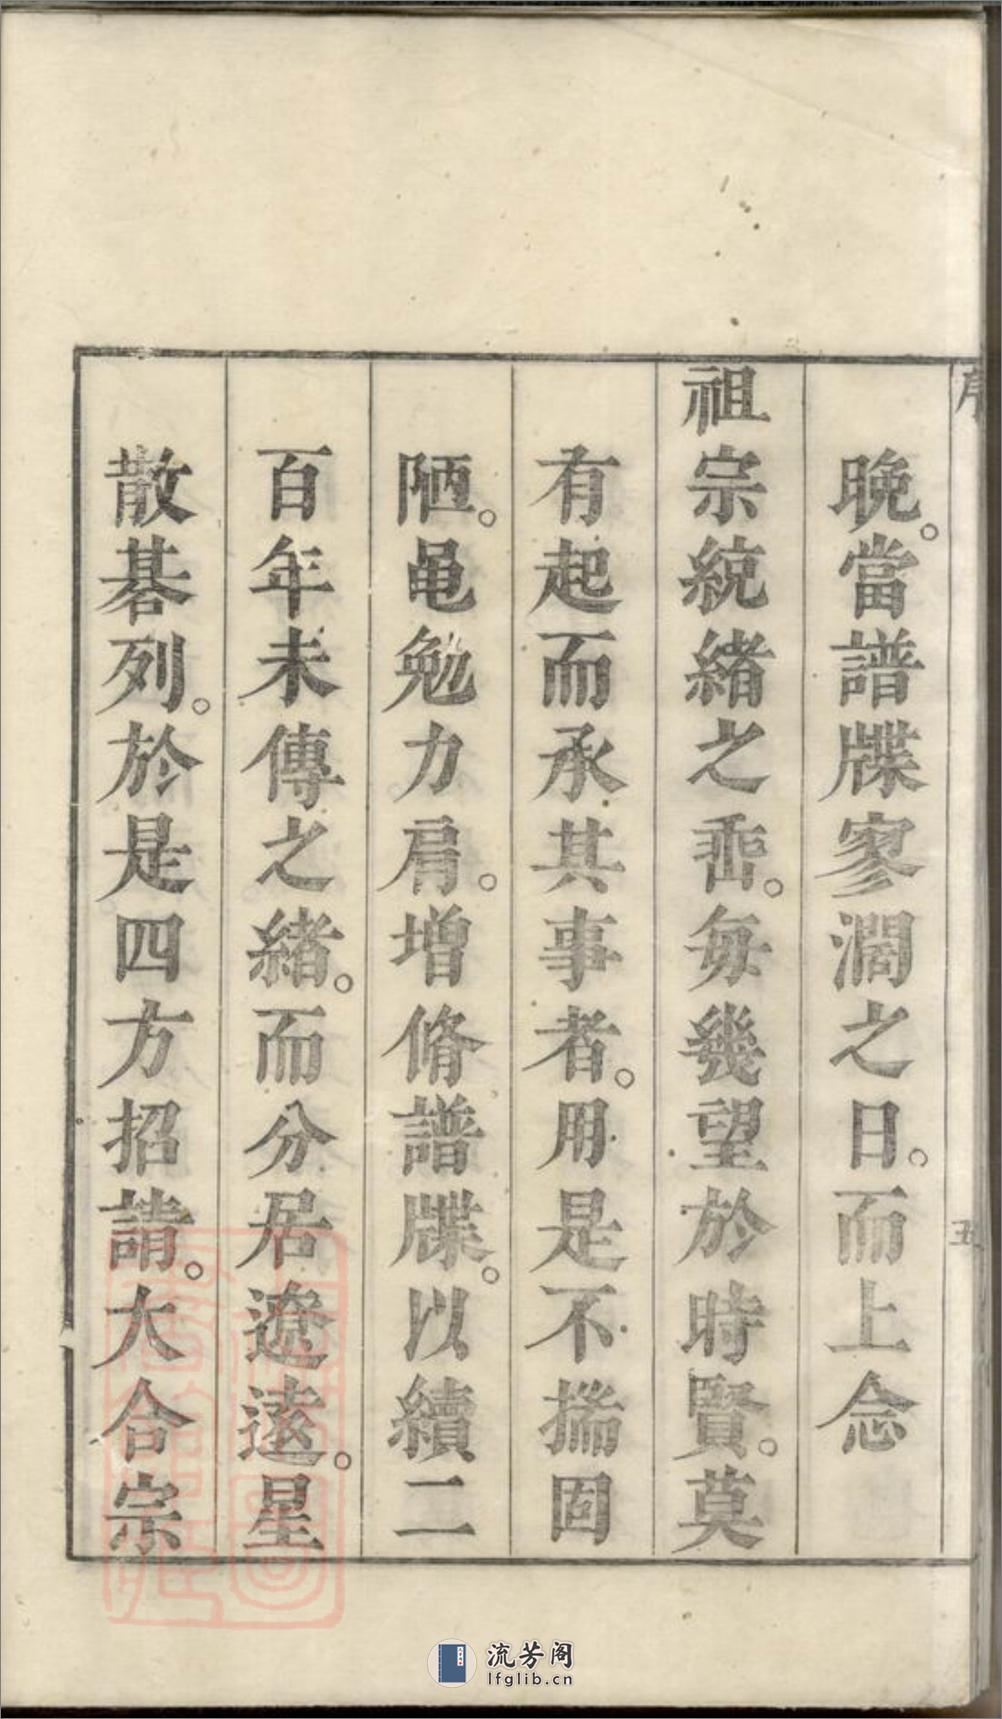 序
五
晚。當譜牒寥濶之日。而上念
祖宗統緒之乖。每幾望於時賢。莫
有起而承其事者。用是不揣固
陋。黽勉力肩。增脩譜牒。以續二
百年未傳之緒。而分居遼遠。星
散碁列。於是四方招請。大合宗
流芳阁
lfglib.cn